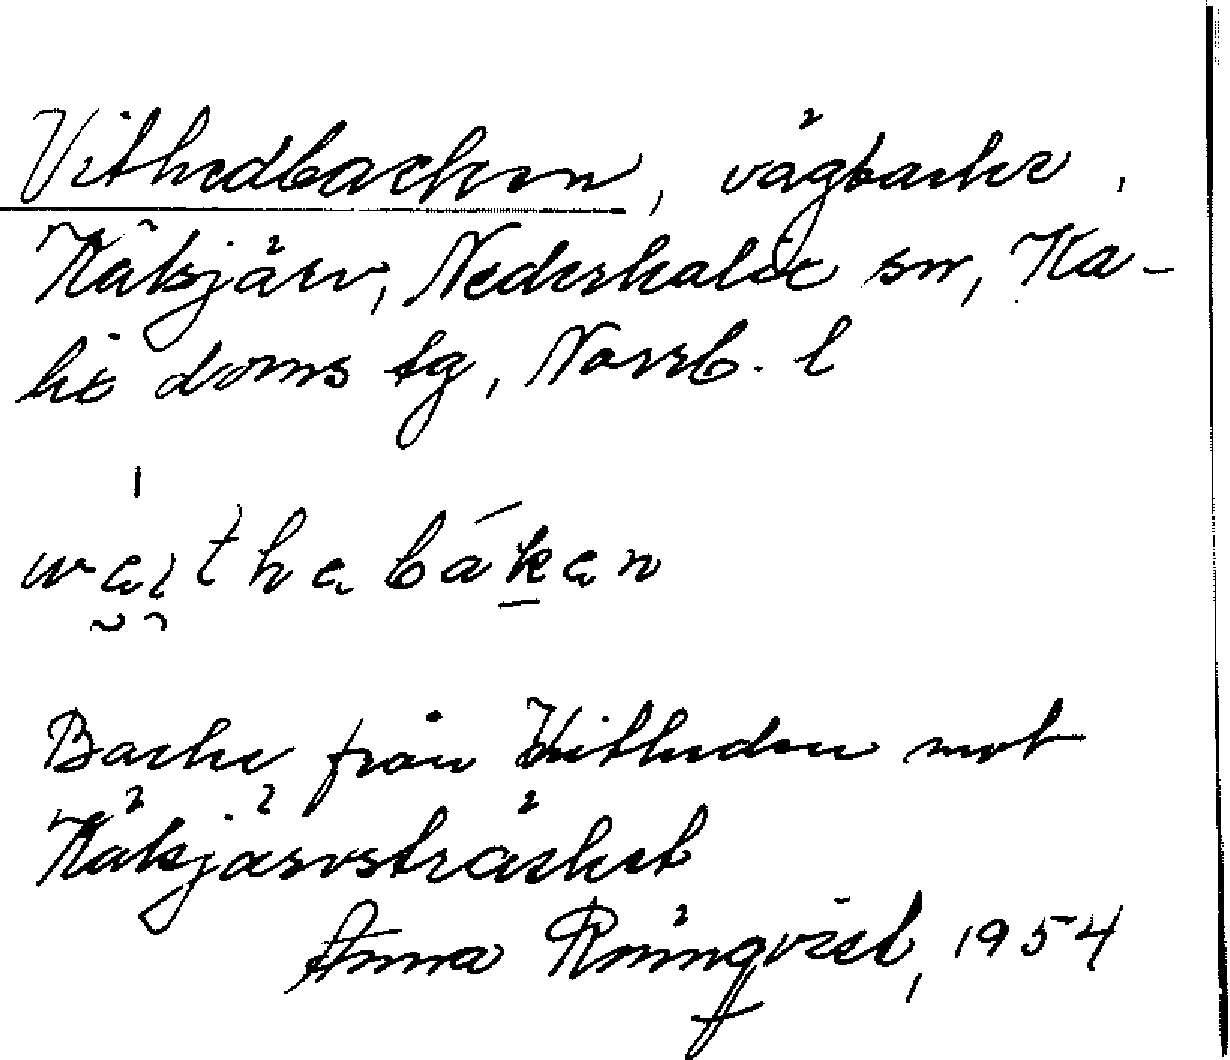 Vithedbacken, vägbacke,
Käksjärv, Nederkalix sn, Ka-
lix doms tg, Norrb. l
Backe från Vitheden mot
Käksjärvsträsket
Anna Rönnqvist, 1954